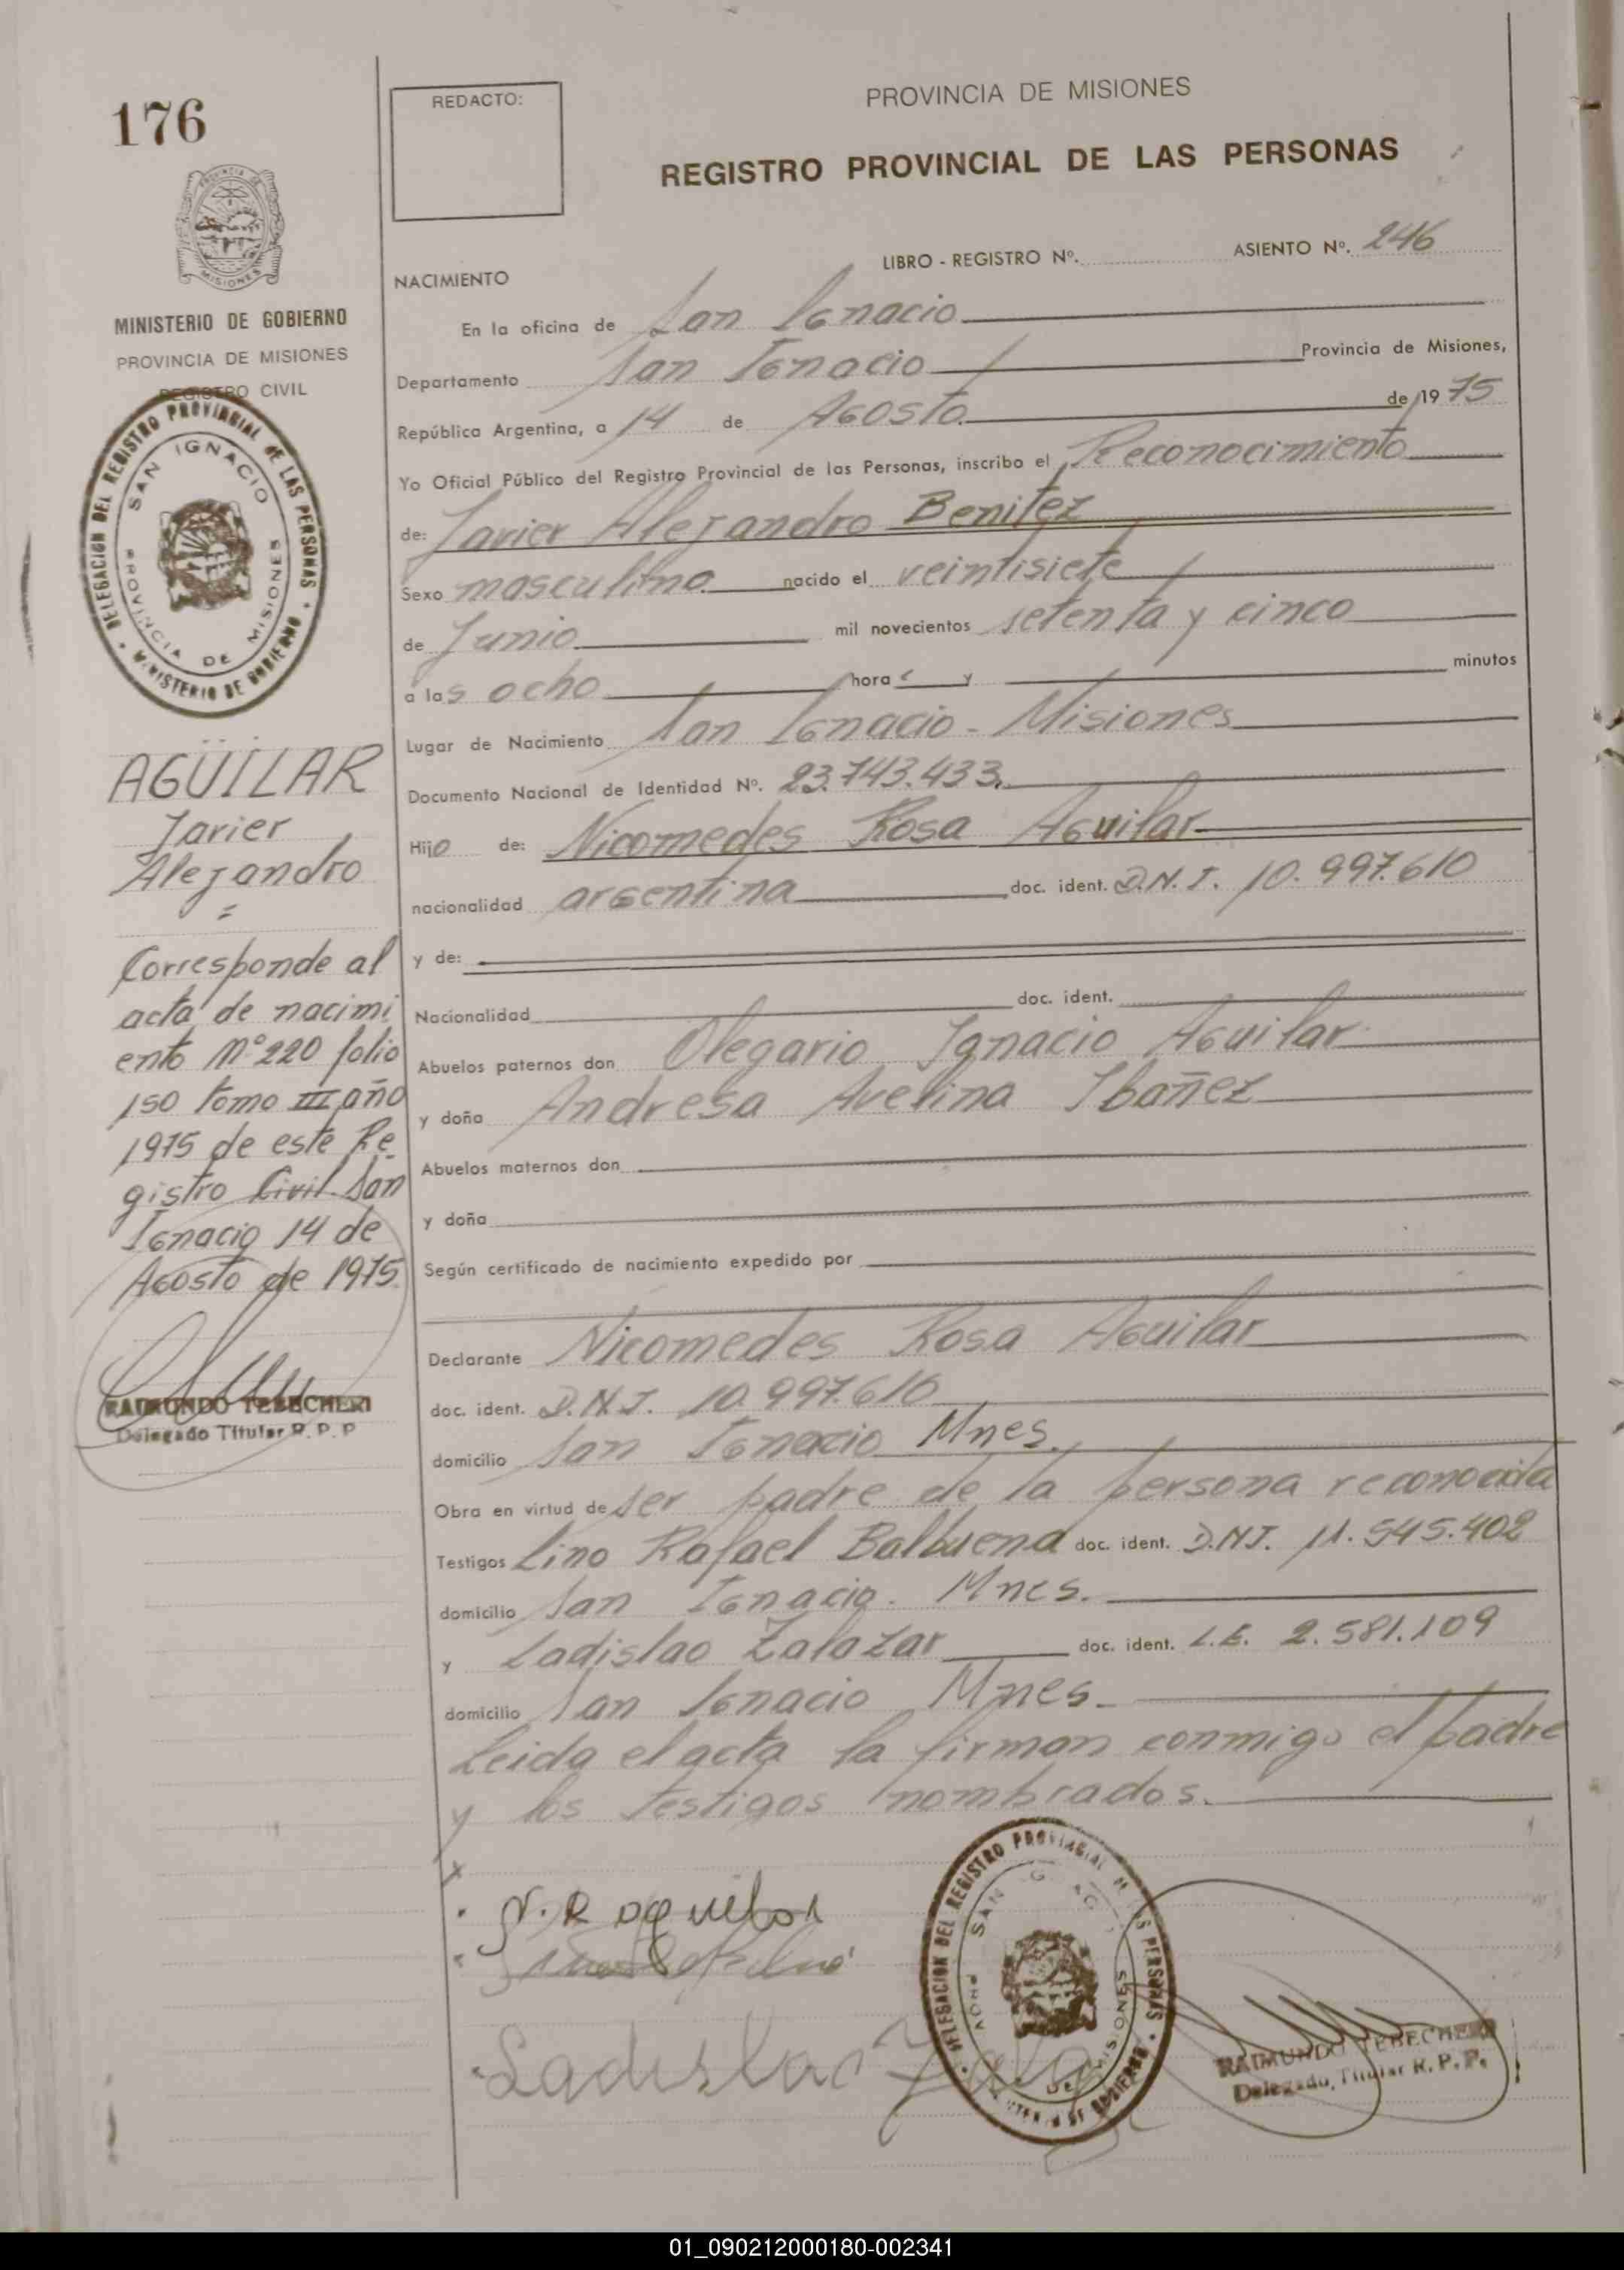 176
REDACTO:
PROVINCIA DE MISIONES
REGISTRO PROVINCIAL DE LAS PERSONAS
LIBRO - REGISTRO Nº. ASIENTO Nº. 246
PROVINCIA DE
MISIONES
MINISTERIO DE GOBIERNO
PROVINCIA DE MISIONES
REGISTRO CIVIL
DELEGACION DEL REGISTRO PROVINCIAL DE LAS PERSONAS
MINISTERIO DE GOBIERNO
SAN IGNACIO
PROVINCIA DE MISIONES
AGÜILAR
Javier
Alejandro
=
Corresponde al
acta de nacimi
ento Nº 220 folio
150 tomo III año
1975 de este Re
gistro Civil. San
Ignacio 14 de
Agosto de 1975.
RAIMUNDO TEBECHERI
Delegado Titular R. P. P
NACIMIENTO
En la oficina de San Ignacio
Departamento San Ignacio Provincia de Misiones,
República Argentina, a 14 de Agosto de 1975
Yo Oficial Público del Registro Provincial de las Personas, inscribo el Reconocimiento
de: Javier Alejandro Benitez
Sexo masculino nacido el veintisiete
de Junio mil novecientos setenta y cinco
a las ocho hora s y minutos
Lugar de Nacimiento San Ignacio - Misiones
Documento Nacional de Identidad Nº. 23.743.433.
Hijo de: Nicomedes Rosa Aguilar
nacionalidad argentina doc. ident. D.N.I. 10.997.610
y de:
Nacionalidad doc. ident.
Abuelos paternos don Olegario Ignacio Aguilar
y doña Andresa Avelina Ibañez
Abuelos maternos don
y doña
Según certificado de nacimiento expedido por
Declarante Nicomedes Rosa Aguilar
doc. ident. D.N.I. 10.997.610
domicilio San Ignacio Mnes.
Obra en virtud de ser padre de la persona reconocida
Testigos Lino Rafael Balbuena doc. ident. D.N.I. 11.545.402
domicilio San Ignacio. Mnes.
y Ladislao Zalazar doc. ident. L.E. 2.581.109
domicilio San Ignacio Mnes.
Leida el acta la firman conmigo el padre
y los testigos nombrados.
N. R aguilar
Ladislao
DELEGACION DEL REGISTRO PROVINCIAL
RAIMUNDO TEBECHERI
Delegado, Titular R. P. P.
01_090212000180-002341